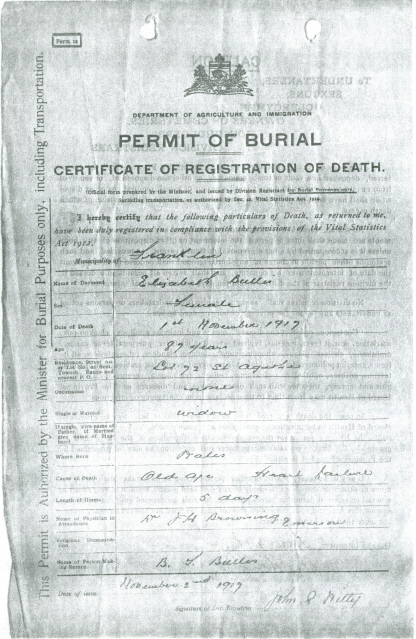 Form 18
DEPARTMENT OF AGRICULTURE AND IMMIGRATION
PERMIT OF BURIAL
CERTIFICATE OF REGISTRATION OF DEATH.
Official form prepared by the Minister, and issued by Division Registrars for Burial Purposes only,
including transportation, as authorized by Sec. Vital Statistics Act,
I hereby certify that the following particulars of Death, as returned to me,
have been duly registered in compliance with the provisions of the Vital Statistics
Act
Municipality of Franklin
Name of Deceased Elizabeth Butler
Sex Female
Date of Death 1st November 1919
Age 89 years
Residence, Street
Lot 72 St
Occupation none
Single or Married widow
If single, give name of Father, if Married give name of Husband
Where Born Wales
Cause of Death Old Age Heart Failure
Length of Illness 5 days
Name of Physician in Attendance Dr Browning Emerson
Religious Denomination
Name of Person Making Return B. Butler
Date of Issue November 2nd 1919
John
This Permit is Authorized by the Minister for Burial Purposes only, including Transportation.
TO UNDERTAKERS,
SEXTONS,